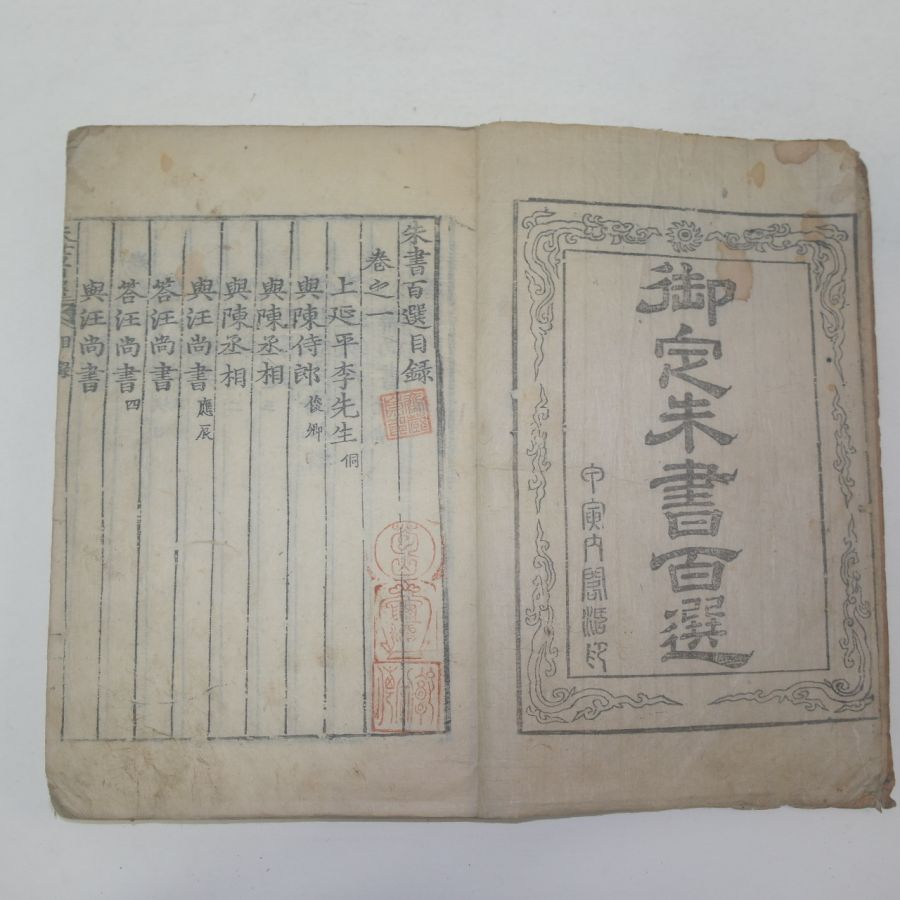 御定朱書百選
甲寅內閣活印
朱書百選目錄
卷之一
上延平李先生 侗
與陳侍郎 俊卿
與陳丞相
與陳丞相
與汪尚書 應辰
答汪尚書
答汪尚書 四
與汪尚書